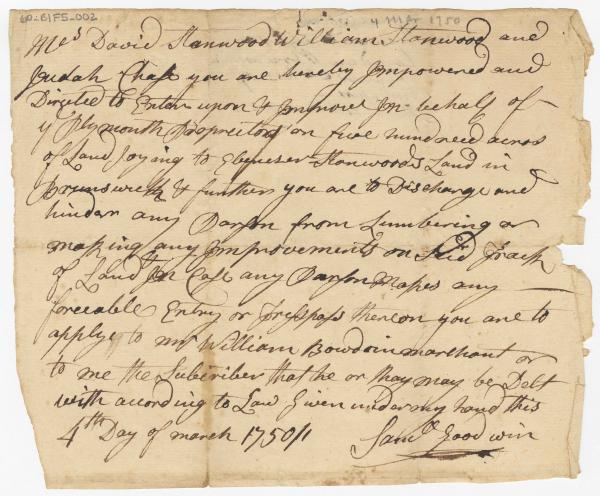 60-B1F5-002
4 Mar 1750
Mes David Stanwood William Stanwood and
Judah Chase you are hereby Impowered and
Directed to Enter upon & Improve In behalf of
ye Plymouth Proprietors on five hundred acres
of Land Joying to Ebenezer Stanwoods Land in
Brunswick & further you are to Discharge and
hinder any Parson from Lumbering or
making any Improvements on Said Track
of Land In Case any Parson Makes any
forceable Entry or Tresspass thereon you are to
apply to mr William Bowdoin marchant or
to me the Subscriber that he or thay may be Delt
with according to Law Given under my hand this
4th Day of march 1750/1
Saml Goodwin